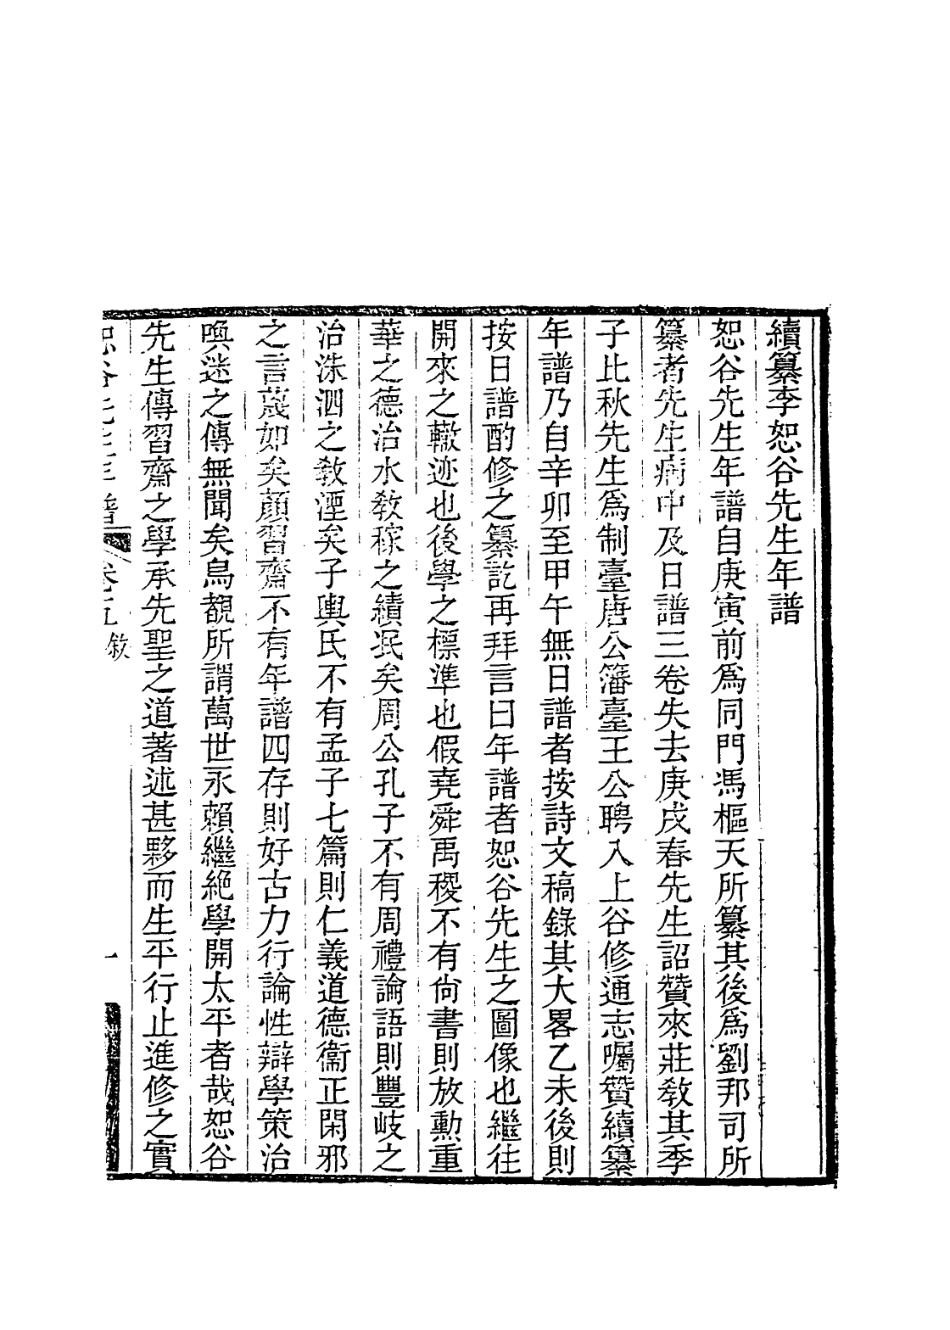 續纂李恕谷先生年譜
恕谷先生年譜自庚寅前爲同門馮樞天所纂其後爲劉邦司所
纂者先生病中及日譜三卷失去庚戌春先生詔贊來莊敎其季
子比秋先生爲制臺唐公籓臺王公聘入上谷修通志囑贊續纂
年譜乃自辛卯至甲午無日譜者按詩文稿錄其大畧乙未後則
按日譜酌修之纂訖再拜言曰年譜者恕谷先生之圖像也繼往
開來之轍迹也後學之標準也假堯舜禹稷不有尙書則放勳重
華之德治水敎稼之績泯矣周公孔子不有周禮論語則豐岐之
治洙泗之敎湮矣子輿氏不有孟子七篇則仁義道德衞正閑邪
之言蔑如矣顏習齋不有年譜四存則好古力行論性辯學策治
喚迷之傳無聞矣烏覩所謂萬世永賴繼絕學開太平者哉恕谷
先生傳習齋之學承先聖之道著述甚夥而生平行止進修之實
恕谷先生年譜 卷五 敘 一